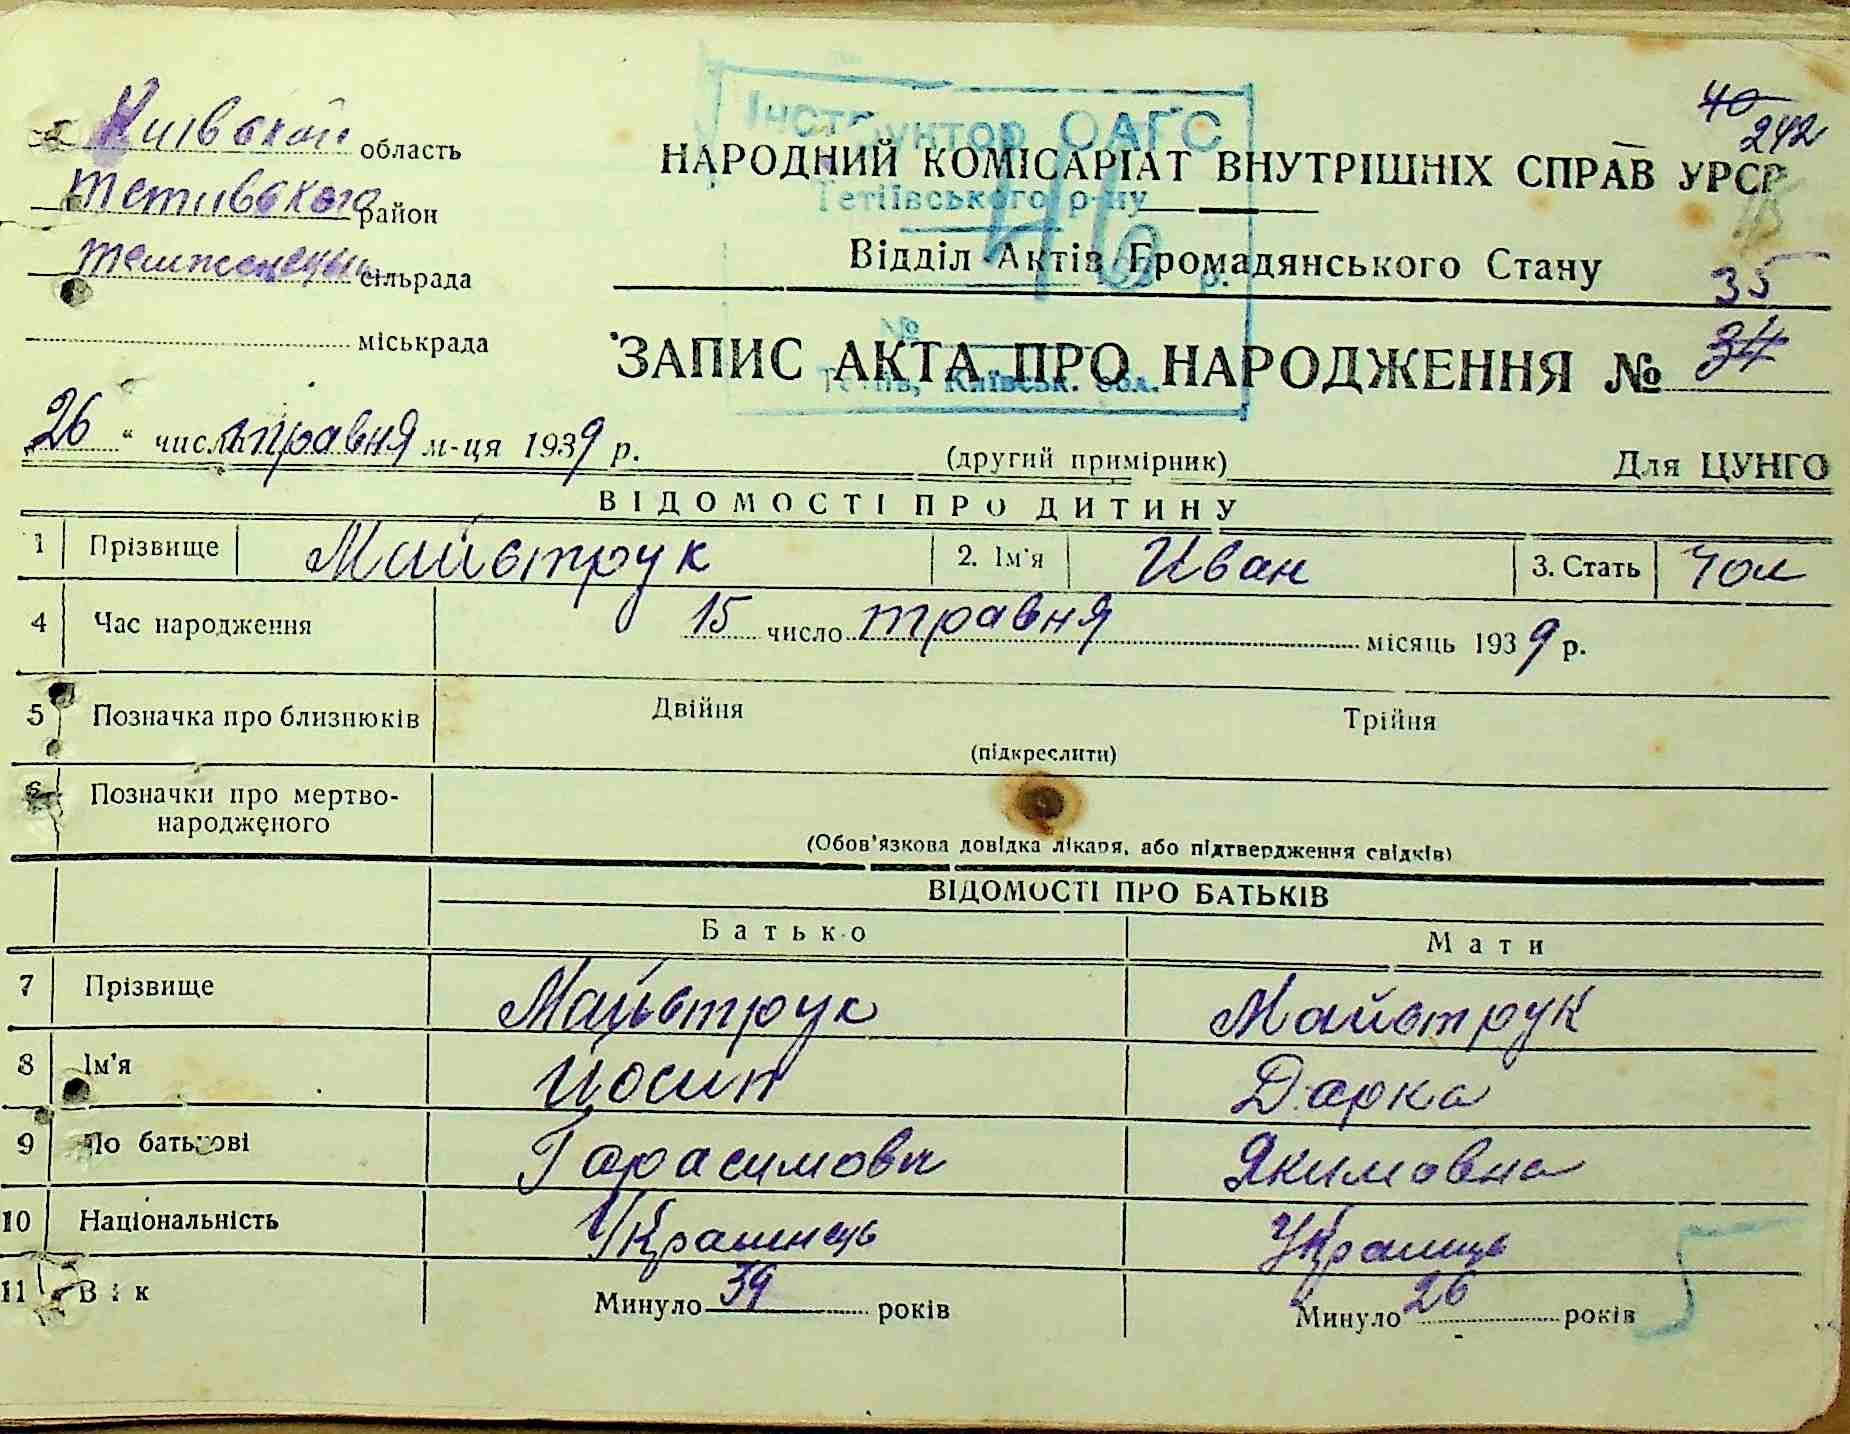 Київской область
40
242
Інструктор ОАГС
НАРОДНИЙ КОМІСАРІАТ ВНУТРІШНІХ СПРАВ УРСР
Тетиївского район
Тетіївського р-ну
46
Відділ Актів Громадянського Стану
р.
35
сільрада
міськрада
№
ЗАПИС АКТА ПРО НАРОДЖЕННЯ № 34
Тетіїв, Київськ. обл.
26 " числа травня м-ця 1939 р.
(другий примірник)
Для ЦУНГО
ВІДОМОСТІ ПРО ДИТИНУ
1 Прізвище Майструк 2. Ім'я Иван 3. Стать Чол
4 Час народження 15 число травня місяць 1939 р.
5 Позначка про близнюків Двійня Трійня
(підкреслити)
6 Позначки про мертво-
народженого
(Обов'язкова довідка лікаря, або підтвердження свідків)
ВІДОМОСТІ ПРО БАТЬКІВ
Батько Мати
7 Прізвище Майструк Майструк
8 Ім'я Йосип Дарка
9 По батькові Гарасимови Якимовна
10 Національність Украинець Украинць
11 Вік Минуло 39 років Минуло 26 років
5